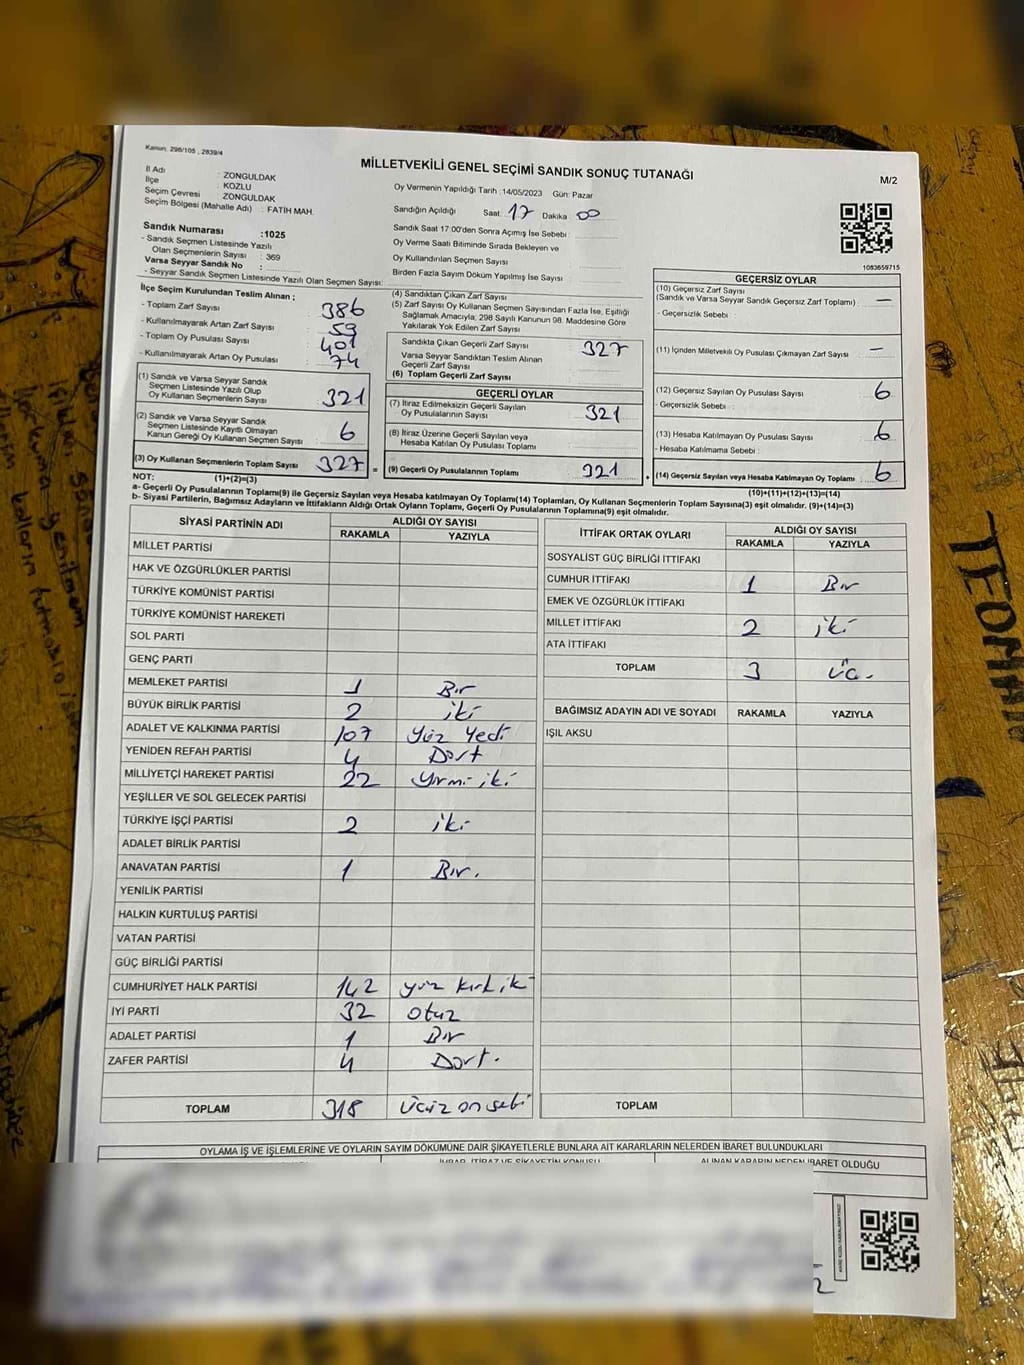 Kanun. 298/105 , 2839/4
MİLLETVEKİLİ GENEL SEÇİMİ SANDIK SONUÇ TUTANAĞI
M/2
İl Adı : ZONGULDAK
İlçe : KOZLU
Seçim Çevresi : ZONGULDAK
Seçim Bölgesi (Mahalle Adı) : FATİH MAH.
Oy Vermenin Yapıldığı Tarih :14/05/2023 Gün: Pazar
Sandığın Açıldığı Saat: 17 Dakika 00
Sandık Saat 17:00'den Sonra Açımış İse Sebebi :
Oy Verme Saati Bitiminde Sırada Bekleyen ve
Oy Kullandırılan Seçmen Sayısı
Birden Fazla Sayım Döküm Yapılmış İse Sayısı :
1083659715
Sandık Numarası :1025
- Sandık Seçmen Listesinde Yazılı
Olan Seçmenlerin Sayısı : 369
Varsa Seyyar Sandık No :
- Seyyar Sandık Seçmen Listesinde Yazılı Olan Seçmen Sayısı:
İlçe Seçim Kurulundan Teslim Alınan ;
- Toplam Zarf Sayısı 386
- Kullanılmayarak Artan Zarf Sayısı 59
- Toplam Oy Pusulası Sayısı 401
- Kullanılmayarak Artan Oy Pusulası 74
(1) Sandık ve Varsa Seyyar Sandık
Seçmen Listesinde Yazılı Olup
Oy Kullanan Seçmenlerin Sayısı 321
(2) Sandık ve Varsa Seyyar Sandık
Seçmen Listesinde Kayıtlı Olmayan
Kanun Gereği Oy Kullanan Seçmen Sayısı : 6
(3) Oy Kullanan Seçmenlerin Toplam Sayısı 327 =
(1)+(2)=(3)
(4) Sandıktan Çıkan Zarf Sayısı
(5) Zarf Sayısı Oy Kullanan Seçmen Sayısından Fazla İse, Eşitliği
Sağlamak Amacıyla; 298 Sayılı Kanunun 98. Maddesine Göre
Yakılarak Yok Edilen Zarf Sayısı
Sandıkta Çıkan Geçerli Zarf Sayısı 327
Varsa Seyyar Sandıktan Teslim Alınan
Geçerli Zarf Sayısı
(6) Toplam Geçerli Zarf Sayısı
GEÇERLİ OYLAR
(7) İtiraz Edilmeksizin Geçerli Sayılan
Oy Pusulalarının Sayısı 321
(8) İtiraz Üzerine Geçerli Sayılan veya
Hesaba Katılan Oy Pusulası Toplamı
(9) Geçerli Oy Pusulalarının Toplamı 321 +
GEÇERSİZ OYLAR
(10) Geçersiz Zarf Sayısı
(Sandık ve Varsa Seyyar Sandık Geçersiz Zarf Toplamı) : —
- Geçersizlik Sebebi :
(11) İçinden Milletvekili Oy Pusulası Çıkmayan Zarf Sayısı : —
(12) Geçersiz Sayılan Oy Pusulası Sayısı : 6
- Geçersizlik Sebebi :
(13) Hesaba Katılmayan Oy Pusulası Sayısı : 6
- Hesaba Katılmama Sebebi :
(14) Geçersiz Sayılan veya Hesaba Katılmayan Oy Toplamı : 6
(10)+(11)+(12)+(13)=(14)
NOT:
a- Geçerli Oy Pusulalarının Toplamı(9) ile Geçersiz Sayılan veya Hesaba katılmayan Oy Toplamı(14) Toplamları, Oy Kullanan Seçmenlerin Toplam Sayısına(3) eşit olmalıdır. (9)+(14)=(3)
b- Siyasi Partilerin, Bağımsız Adayların ve İttifakların Aldığı Ortak Oyların Toplamı, Geçerli Oy Pusulalarının Toplamına(9) eşit olmalıdır.
SİYASİ PARTİNİN ADI ALDIĞI OY SAYISI
RAKAMLA YAZIYLA
MİLLET PARTİSİ
HAK VE ÖZGÜRLÜKLER PARTİSİ
TÜRKİYE KOMÜNİST PARTİSİ
TÜRKİYE KOMÜNİST HAREKETİ
SOL PARTİ
GENÇ PARTİ
MEMLEKET PARTİSİ 1 Bir
BÜYÜK BİRLİK PARTİSİ 2 iki
ADALET VE KALKINMA PARTİSİ 107 Yüz Yedi
YENİDEN REFAH PARTİSİ 4 Dört
MİLLİYETÇİ HAREKET PARTİSİ 22 Yirmi iki
YEŞİLLER VE SOL GELECEK PARTİSİ
TÜRKİYE İŞÇİ PARTİSİ 2 iki
ADALET BİRLİK PARTİSİ
ANAVATAN PARTİSİ 1 Bir.
YENİLİK PARTİSİ
HALKIN KURTULUŞ PARTİSİ
VATAN PARTİSİ
GÜÇ BİRLİĞİ PARTİSİ
CUMHURİYET HALK PARTİSİ 142 yüz kırk iki
İYİ PARTİ 32 otuz
ADALET PARTİSİ 1 Bir
ZAFER PARTİSİ 4 Dört.
TOPLAM 318
İTTİFAK ORTAK OYLARI ALDIĞI OY SAYISI
RAKAMLA YAZIYLA
SOSYALİST GÜÇ BİRLİĞİ İTTİFAKI
CUMHUR İTTİFAKI 1 Bir
EMEK VE ÖZGÜRLÜK İTTİFAKI
MİLLET İTTİFAKI 2 iki
ATA İTTİFAKI
TOPLAM 3 üç.
BAĞIMSIZ ADAYIN ADI VE SOYADI RAKAMLA YAZIYLA
IŞIL AKSU
TOPLAM
OYLAMA İŞ VE İŞLEMLERİNE VE OYLARIN SAYIM DÖKÜMÜNE DAİR ŞİKAYETLERLE BUNLARA AİT KARARLARIN NELERDEN İBARET BULUNDUKLARI
İHBAR, İTİRAZ VE ŞİKAYETİN KONUSU ALINAN KARARIN NEDEN İBARET OLDUĞU
TEOMAN